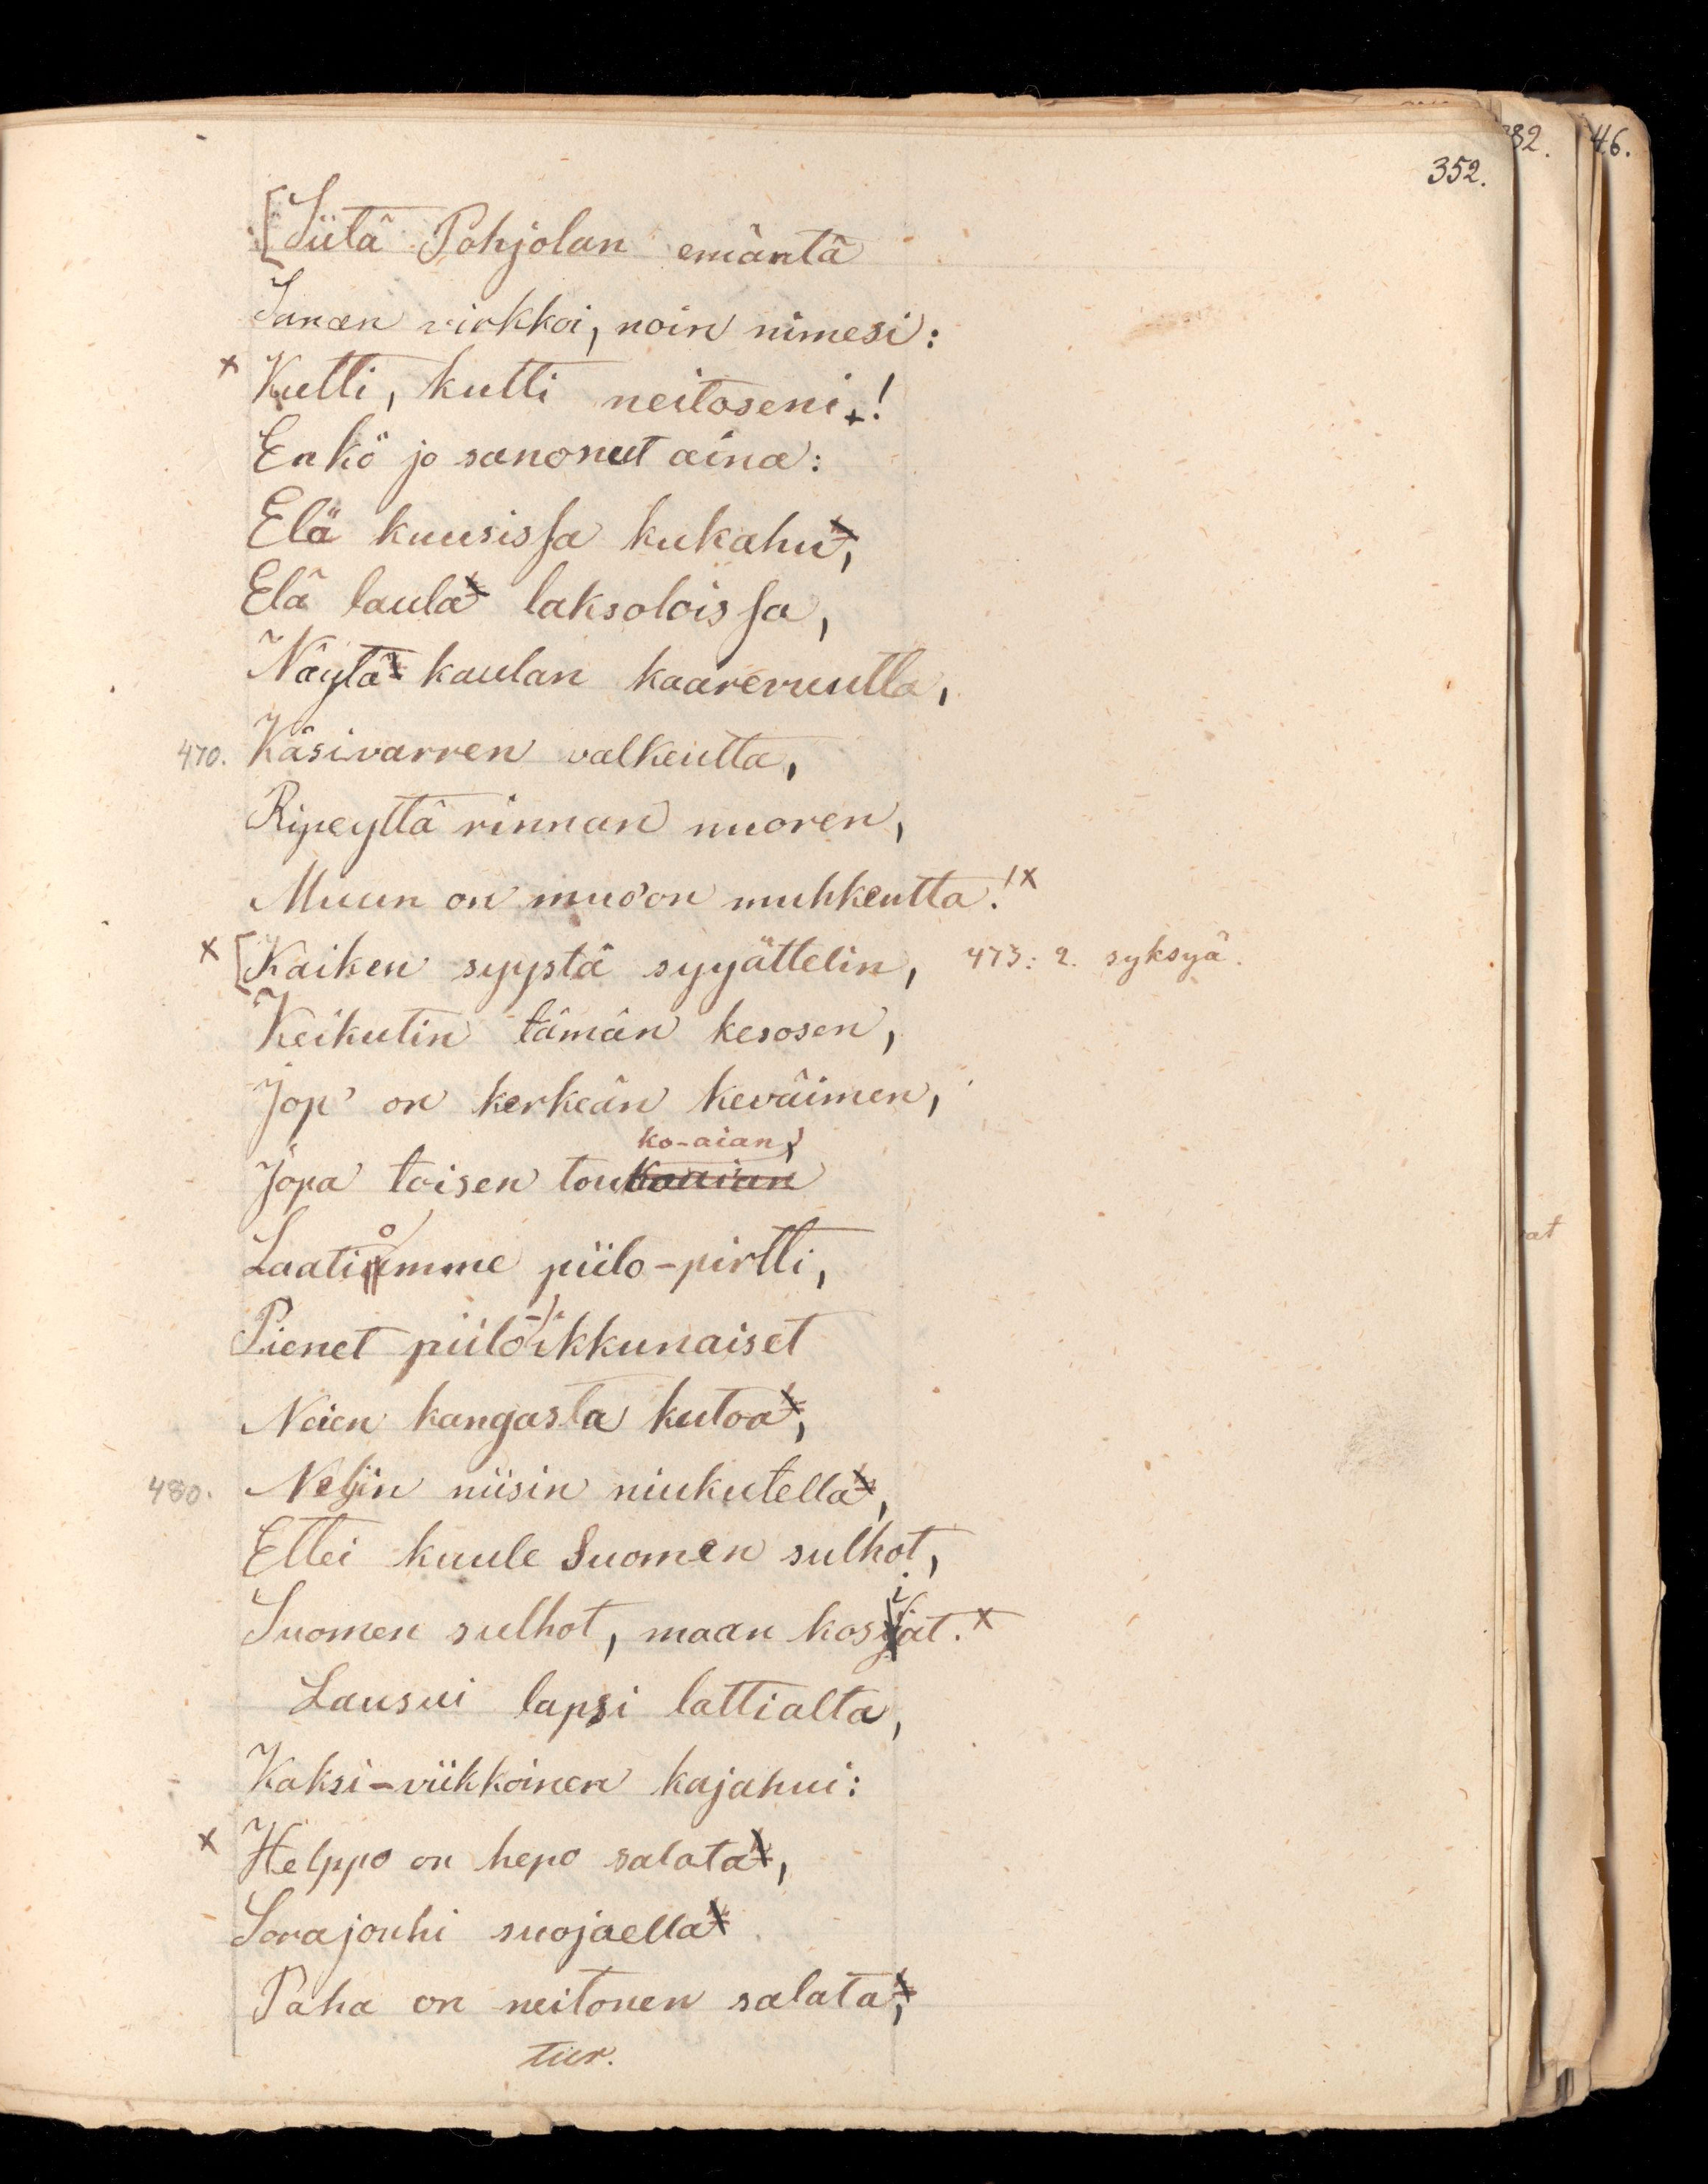 352.
82.
46.
[Siitä Pohjolan emäntä
Sanan virkkoi, noin nimesi:
x Kutti, kutti neitoseni+!
Enkö jo sanonut aina:
Elä kuusissa kukahu,
Elä laula laksoloissa,
Näytä kaulan kaarevuutta,
470. Käsivarren valkeutta,
Ripeyttä rinnan nuoren,
Muun on muo'on muhkeutta!x
x [Kaiken syystä syyättelin, 473: 2. syksyä.
Keikutin tämän kesosen,
Jop' on kerkeän keväimen,
ko-aian,
Jopa toisen toukouian
o
Laatiamme piilo-pirtti,
Pienet piilo-ikkunaiset
Neien kangasta kutoa,
480. Neljin niisin niukutella,
Ettei kuule Suomen sulhot,
i
Suomen sulhot, maan kosjat.x
Lausui lapsi lattialta,
Kaksi-viikkoinen kajahui:
x Helppo on hepo salata,
Sorajouhi suojaella
Paha on neitonen salata,
tur.
at